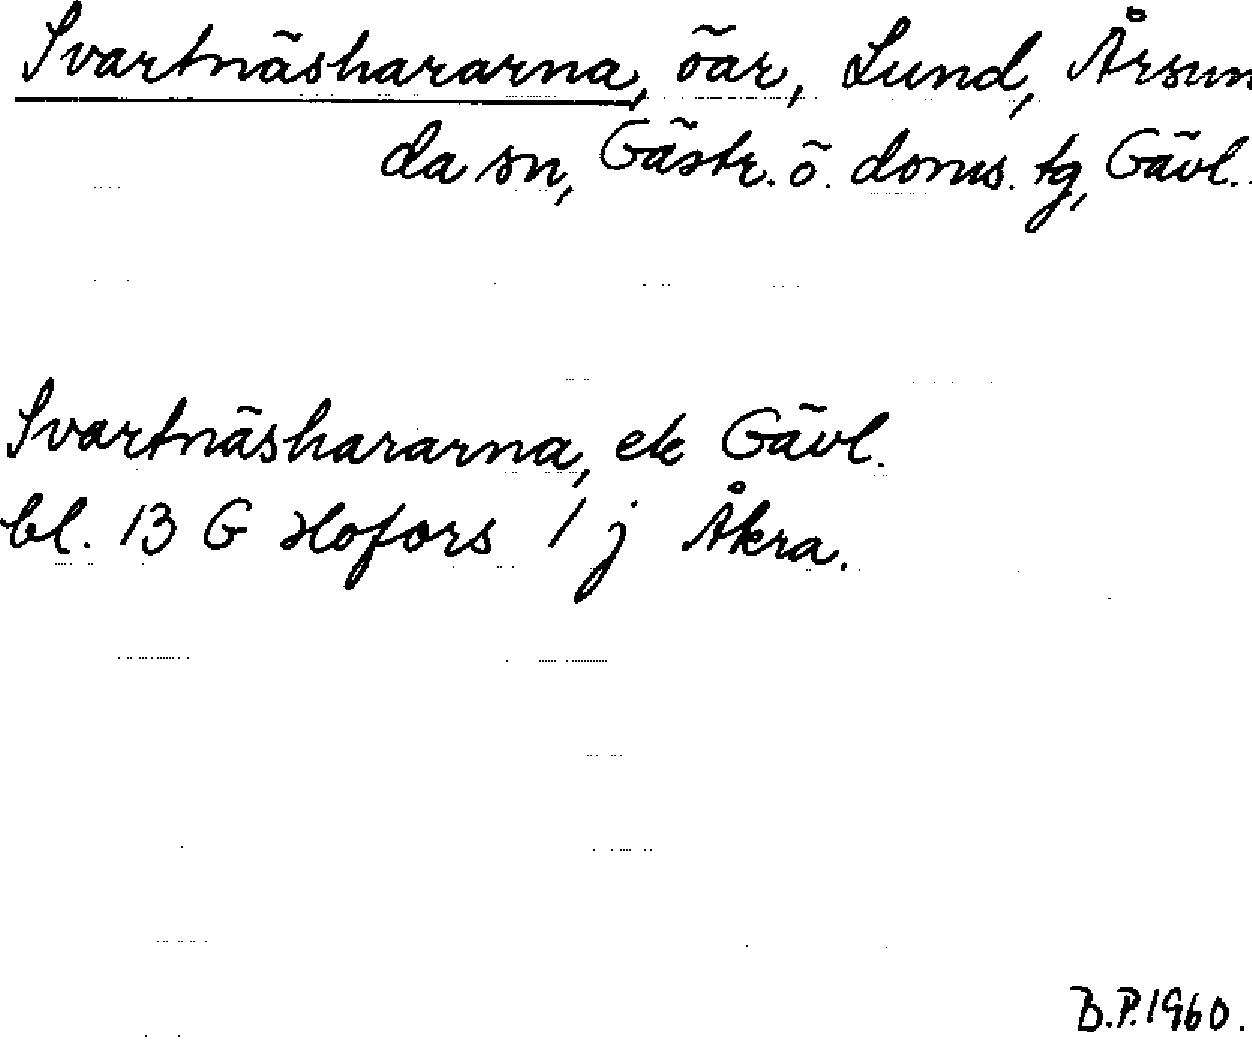 Svartnäshararna, öar, Lund, Årsun
da sn, Gästr. ö. doms. tg, Gävl..
Svartnäshararna, ek Gävl.
bl. 13 G Hofors 1 j Åkra.
B.P.1960.